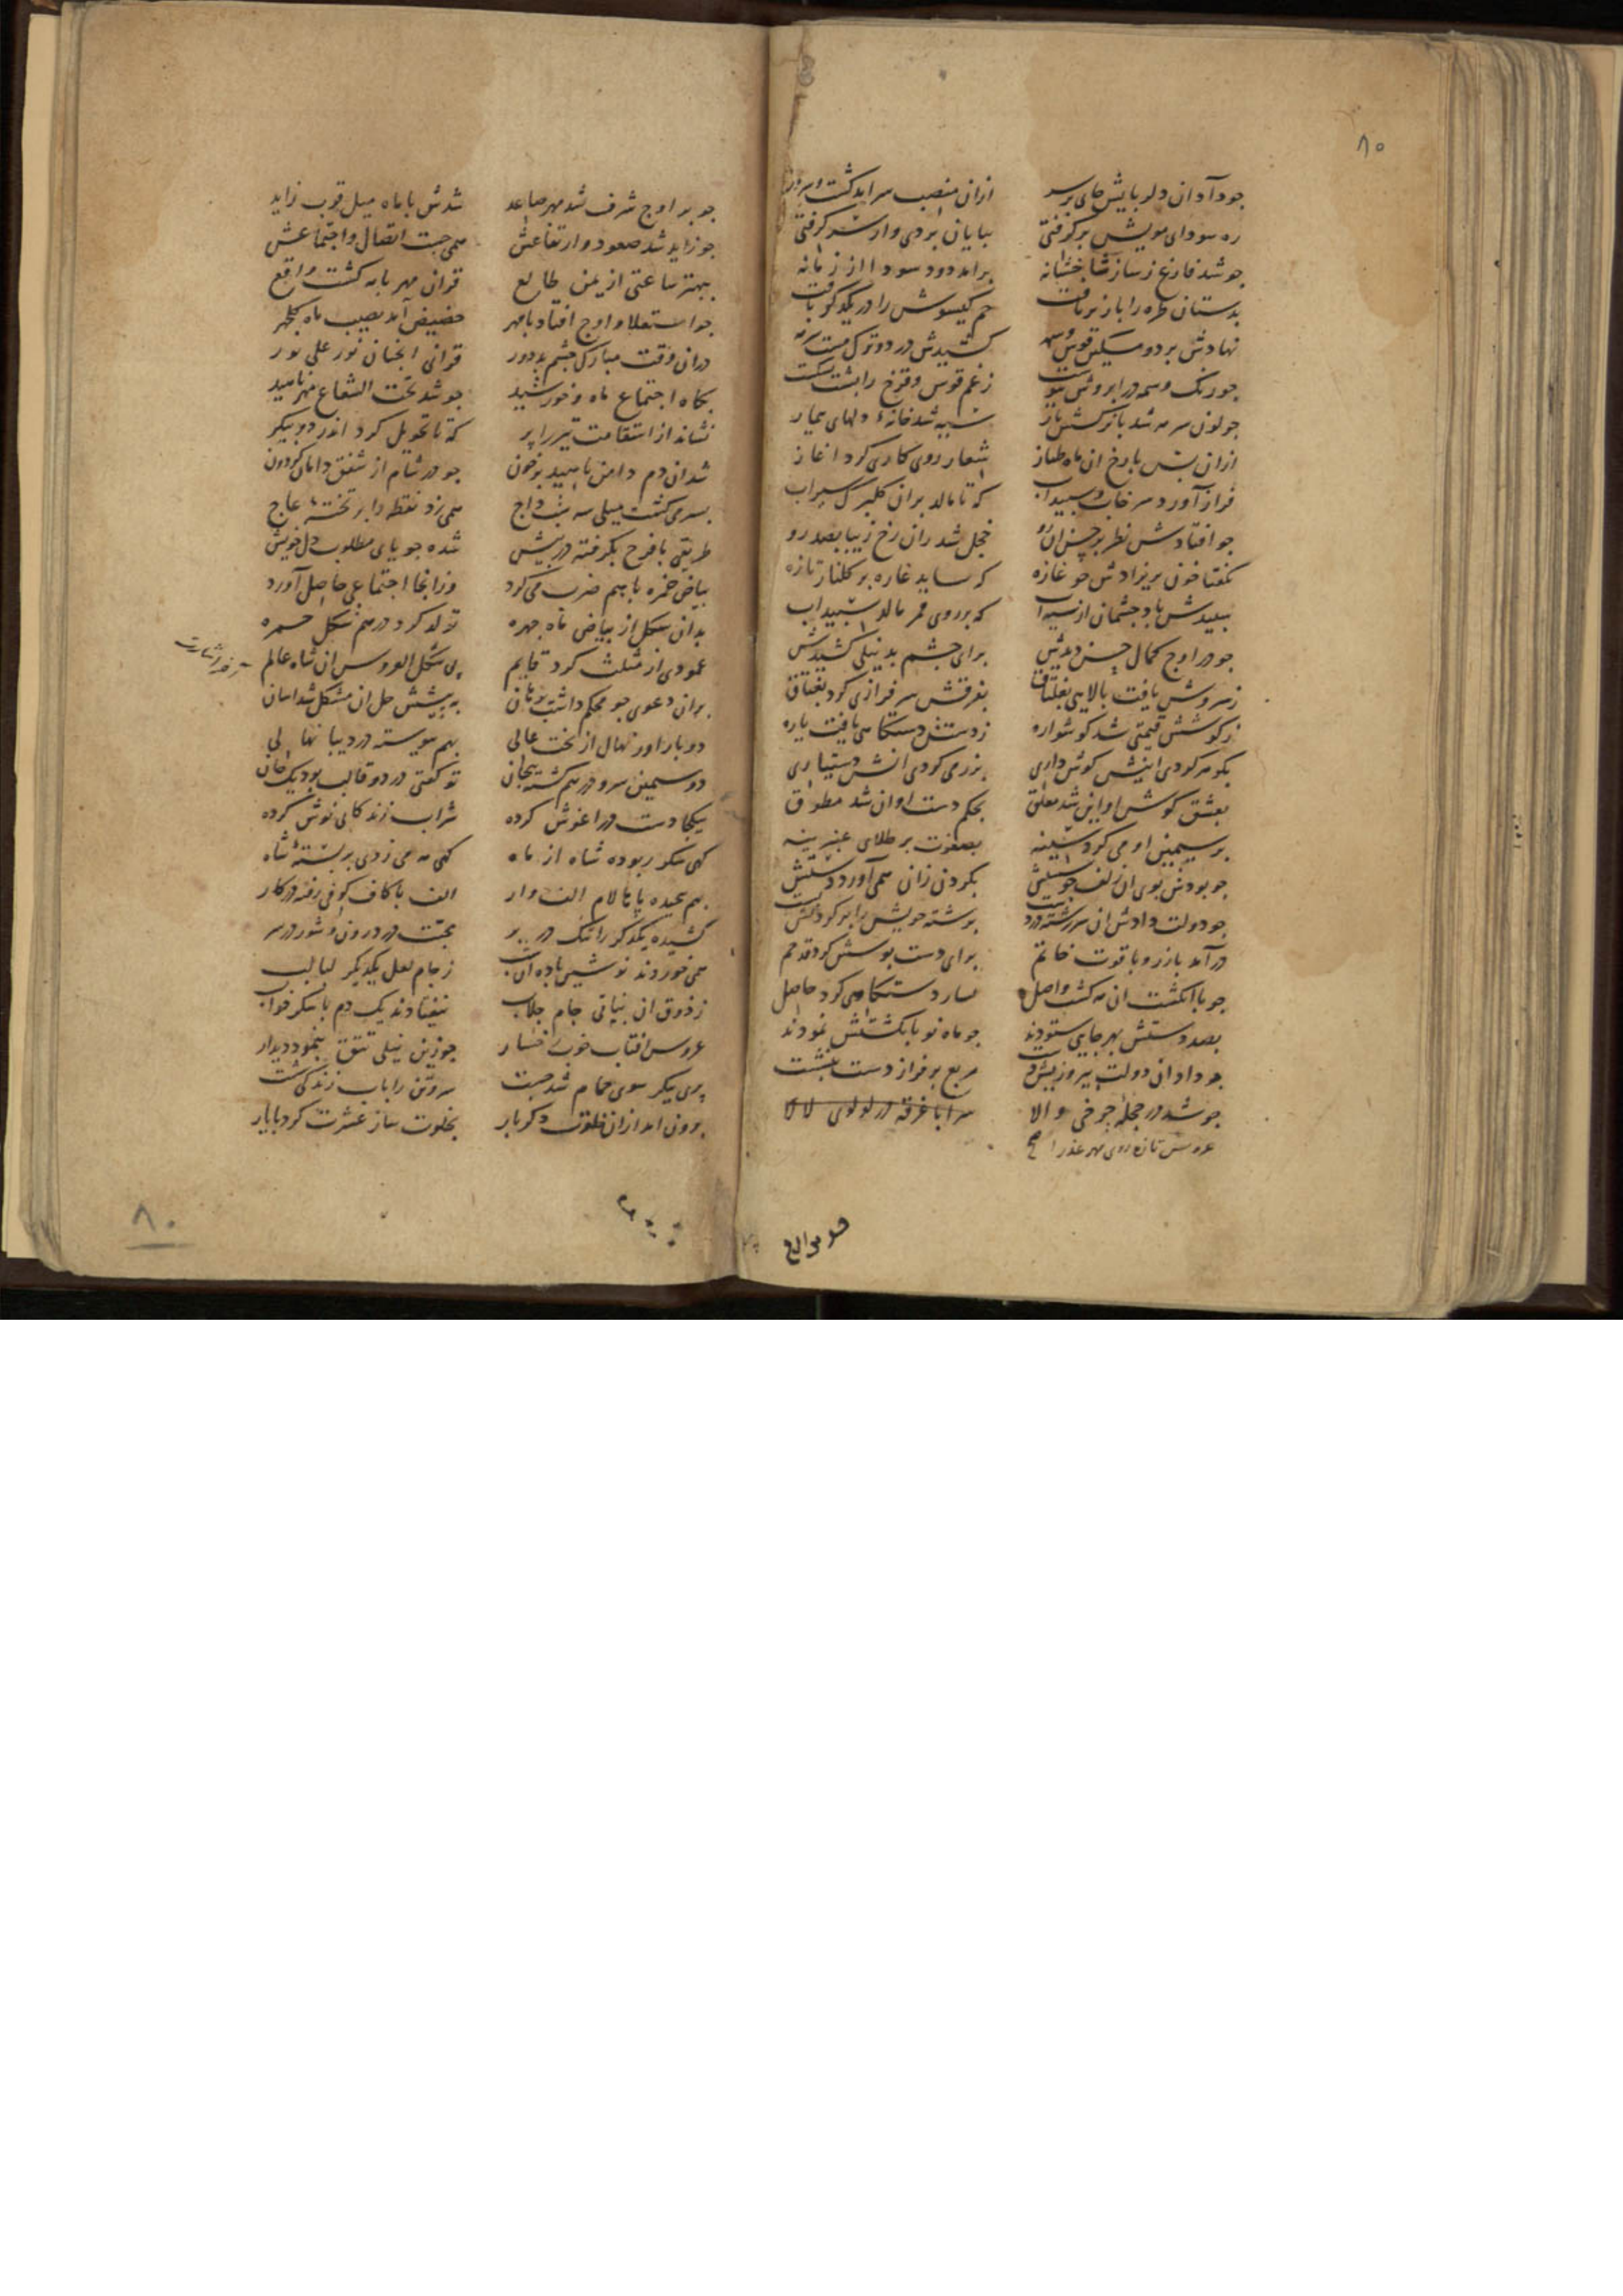 ۸۰
چو در آمد آن دلربایش جای بر سر ازان منصب سرآمد گشت
ره سودای مویش بر گرفتی بپایان بردی و از سر گرفتی
چو شد فارغ ز ساز شاخ شانه برامد دود سودا از زمانه
بدستان طره را باز بر تافت خم گیسوش را در یکدگر بافت
نهادش بر دو مسکین قوس کشیدش در دو ترک مست سرمه
چو رنک وسمه در ابروش پیوست ز غم قوس و قزح را پشت بشکست
چو لون سرمه شد با نرکسش یار سیه شد خانهٔ دلهای بیمار
ازان پس با رخ ان ماه طناز شعار روی کاری کرد اغاز
فراز آورد سرخاب و سپیداب که تا مالد بران کلبرک سیراب
چو افتادش نظر بر حسن ان رو خجل شد زان رخ زیبا بصد رو
بگفتا خون بریزادش چو غازه که ساید غازه بر کلنار تازه
سپیدش باد چشمان از سپیداب که بر روی قمر مالد سپیداب
چو در اوج کمال حسن دیدش برای چشم بد نیلی کشیدش
ز سروش یافت بالایی بغلتاق بفرقش سرفرازی کرد بغتاق
ز کوشش قیمتی شد کوشواره ز دستش دستکاهی یافت یاره
بکوهر کردی اینش کوش داری بزر می کردی انش دستیاری
بعشق کوش او این شد معلق بحکم دست او ان شد مطوق
بر سیمین او می کرد سینه بصفوت بر طلای عنبرینه
چو بودش بوی ان زلف چو سیلش بکردن زان همی آورد میلش
چو دولت دادش ان سررشته در دست برشته خویش را بر کردنش بست
در آمد با زر و یاقوت خاتم برای دست بوسش کرد قد خم
چو با انکشت ان مه کشت واصل یسار دستکاهی کرد حاصل
بصد دستش بهر جایی ستودند چو ماه نو بانکشتش نمودند
چو داد ان دولت پیروز پیش دست مربع بر فراز دست بنشست
چو شد در حجلهٔ چرخی والا سراپا غرقه در لولوی لالا
عروس تازه روی مهر عذرا صح
چو بر اوج شرف شد مهر صاعد شدش با ماه میل قرب زاید
چو زاید شد صعود و ارتفاعش همی جست اتصال و اجتماعش
ببهتر ساعتی از یمن طالع قران مهر با مه کشت واقع
چو استعلا و اوج افتاد با مهر حضیض آمد نصیب ماه کلچهر
دران وقت مبارک چشم بد دور قرانی انچنان نور علی نور
بکاه اجتماع ماه و خورشید چو شد تحت الشعاع مهر ناهید
نشاند از استقامت تیر را پر که تا تحویل کرد اندر دو پیکر
شد ان دم دامن ناهید پر خون چو در شام از شفق دامان کردون
بسرمی کشت میلی سه شب داج همی زد نقطه را بر تختهٔ عاج
طریقی با فرح بکرفته در پیش شده جویای مطلوب دل خویش
بیاض حمره با هم ضرب می کرد وز انجا اجتماعی حاصل آورد
بدان شکل از بیاض ماه چهره تولد کرد در هم شکل حمره
عمودی از مثلث کرد قایم پی شکل العروس ان شاه عالم
بران دعوی چو محکم داشت برهان به پیشش حل ان مشکل شد اسان
دو بار اور نهال از بخت عالی بهم پیوسته در دیبا نهالی
دو سیمین سرو در هم کشته پیچان تو کفتی در دو قالب بود یک جان
بیکجا دست در اغوش کرده شراب زندکانی نوش کرده
کهی شکر ربوده شاه از ماه کهی مه می زدی بر پستهٔ شاه
بهم پیچیده پا تا لام الف وار الف با کاف کوفی رفته در کار
کشیده یکدکر را تنک در بر محبت در درون و شور در سر
همی خوردند نوشین باده ان شب ز جام لعل یکدیکر لبالب
ز ذوق ان نباتی جام جلاب نیفتادند یک دم با شکر خواب
عروس افتاب خوب رخسار چو زین نیلی تتق بنمود دیدار
پری پیکر سوی حمام شد جست سر و تن را باب زندکی شست
برون امد ازان خلوت دکر بار بخلوت ساز عشرت کرد با یار
۸۰